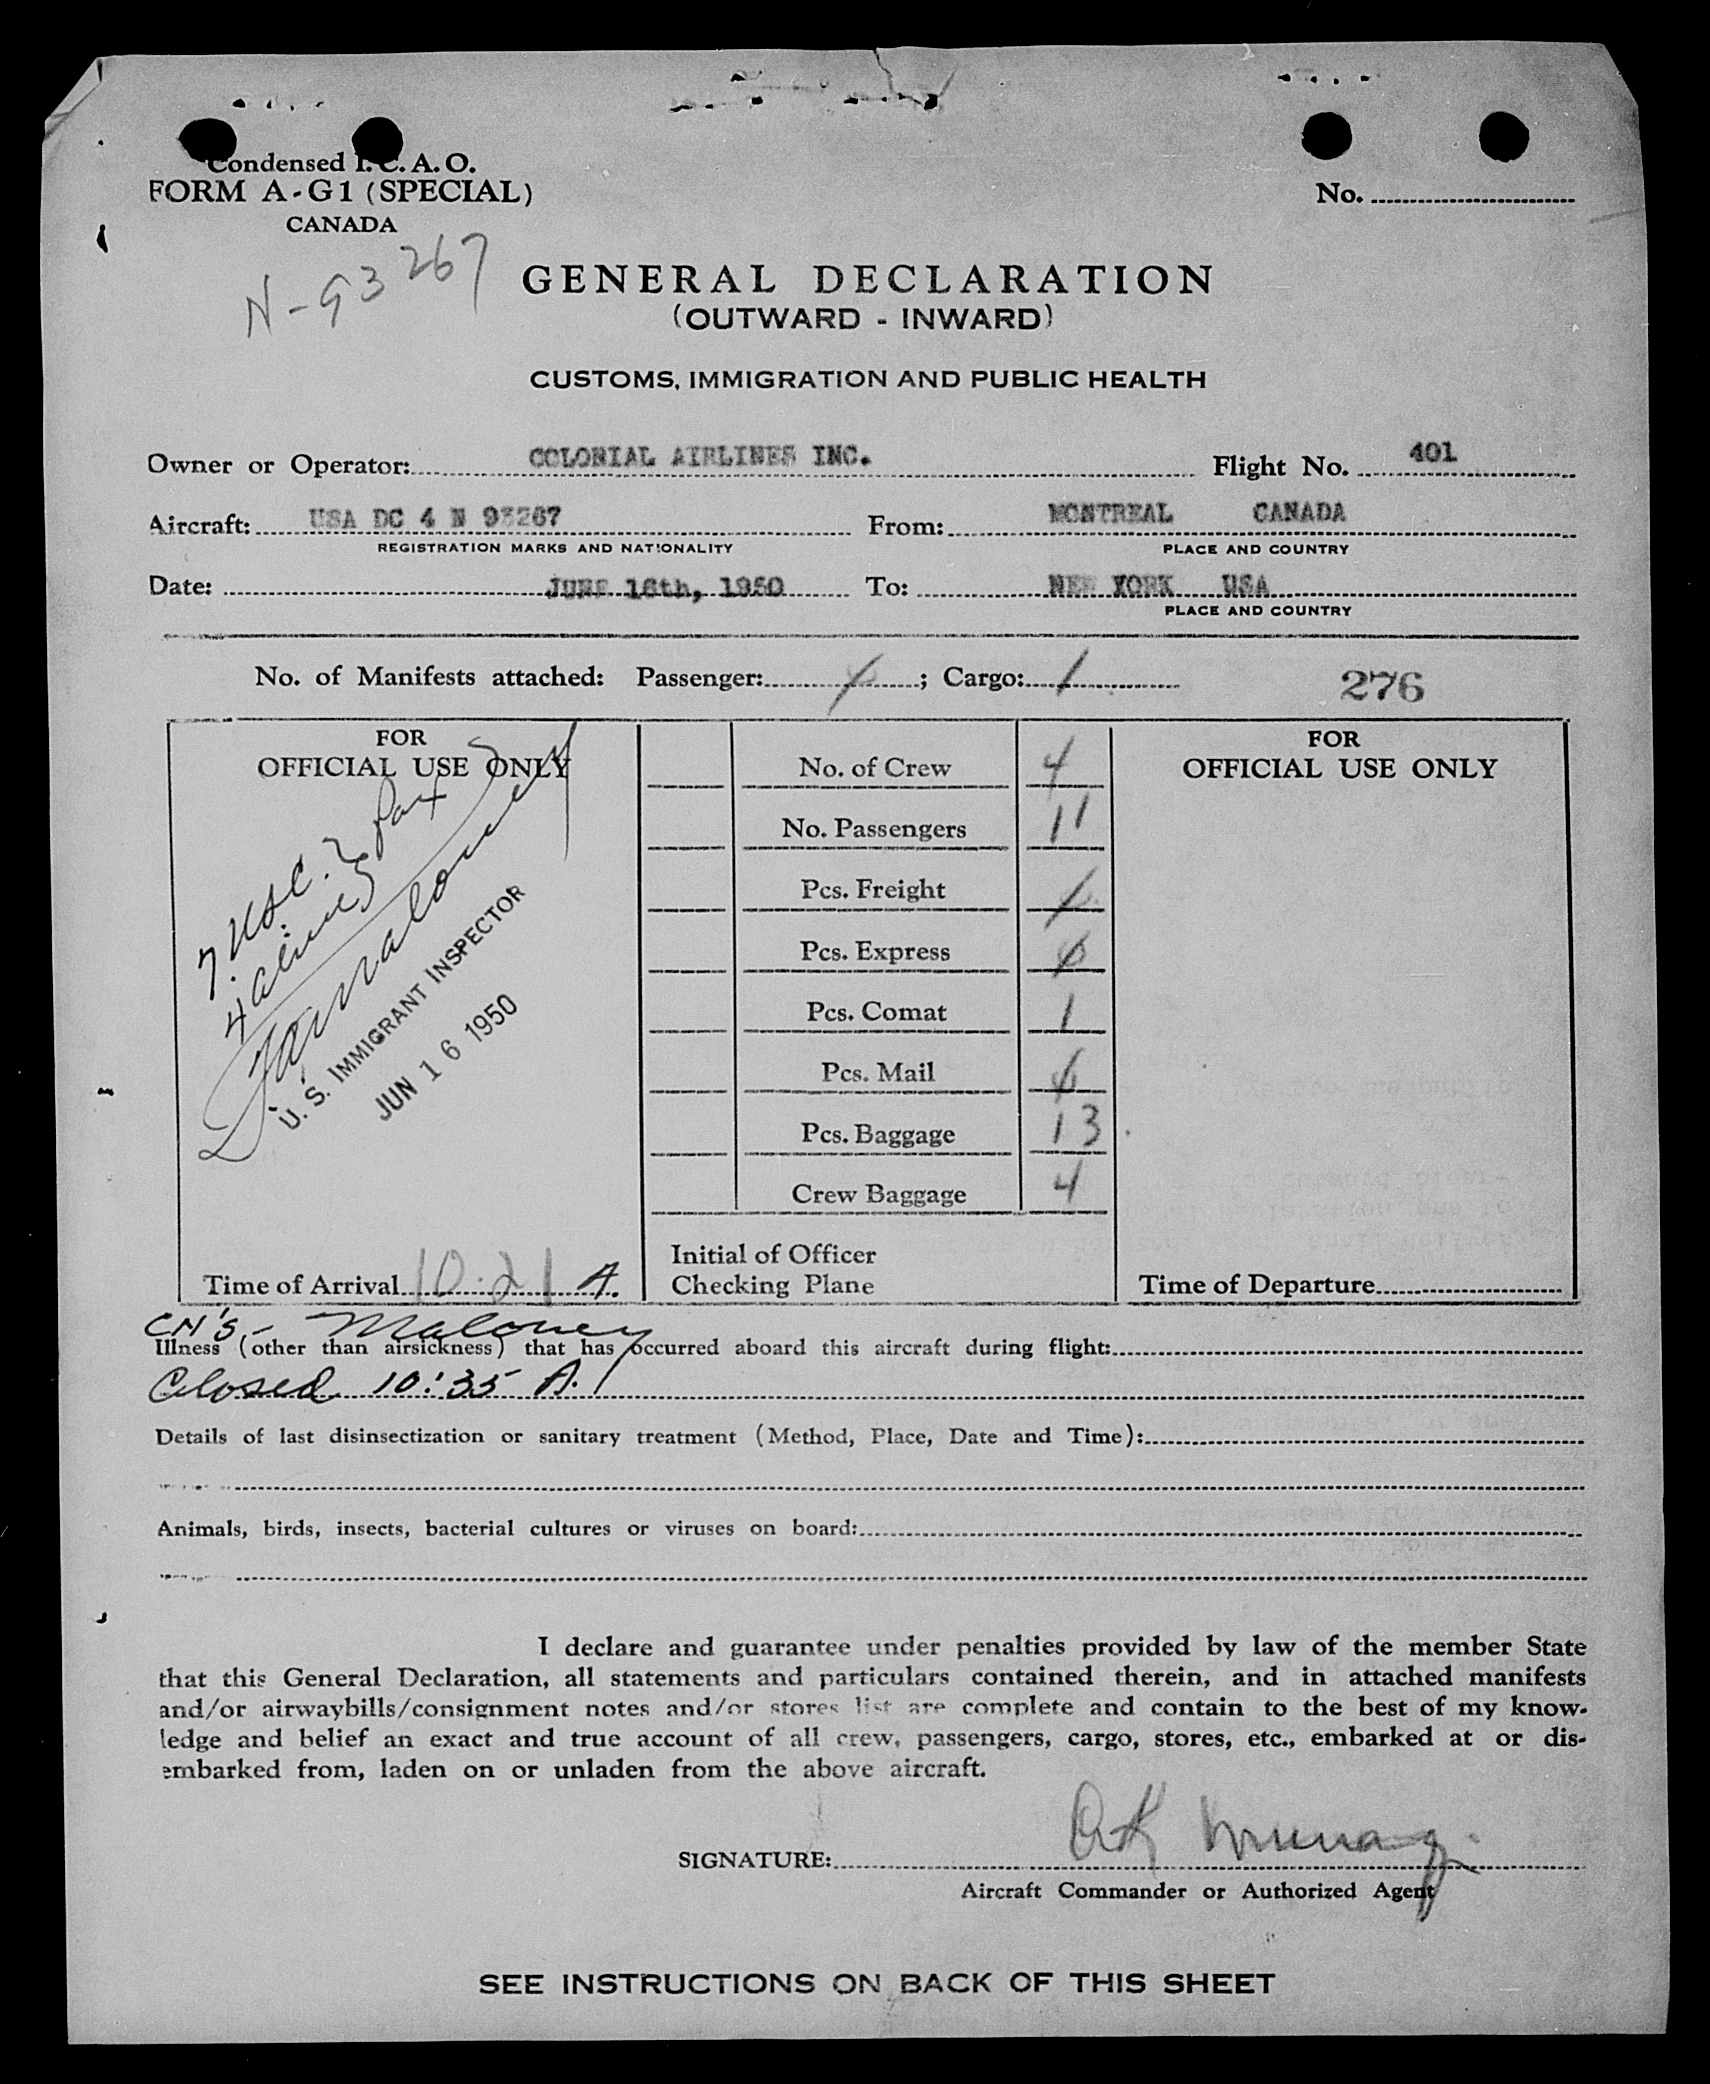 Condensed I.C.A.O.
FORM A-G1 (SPECIAL)
CANADA
No.
N-93267
GENERAL DECLARATION
(OUTWARD - INWARD)
CUSTOMS, IMMIGRATION AND PUBLIC HEALTH
Owner or Operator: COLONIAL AIRLINES INC. Flight No. 401
Aircraft: USA DC 4 N 93267 From: MONTREAL CANADA
REGISTRATION MARKS AND NATIONALITY PLACE AND COUNTRY
Date: JUNE 16th, 1950 To: NEW YORK USA
PLACE AND COUNTRY
No. of Manifests attached: Passenger: ; Cargo: 1 276
FOR
OFFICIAL USE ONLY
7 USC. } pax
4 aliens
Maloney
U. S. IMMIGRANT INSPECTOR
JUN 16 1950
Time of Arrival 10:21 A.
No. of Crew 4
No. Passengers 11
Pcs. Freight
Pcs. Express
Pcs. Comat 1
Pcs. Mail
Pcs. Baggage 13
Crew Baggage 4
Initial of Officer
Checking Plane
FOR
OFFICIAL USE ONLY
Time of Departure
Maloney
Illness (other than airsickness) that has occurred aboard this aircraft during flight:
Closed 10:35 A.
Details of last disinsectization or sanitary treatment (Method, Place, Date and Time):
Animals, birds, insects, bacterial cultures or viruses on board:
I declare and guarantee under penalties provided by law of the member State
that this General Declaration, all statements and particulars contained therein, and in attached manifests
and/or airwaybills/consignment notes and/or stores list are complete and contain to the best of my know-
ledge and belief an exact and true account of all crew, passengers, cargo, stores, etc., embarked at or dis-
embarked from, laden on or unladen from the above aircraft.
SIGNATURE:
Aircraft Commander or Authorized Agent
SEE INSTRUCTIONS ON BACK OF THIS SHEET